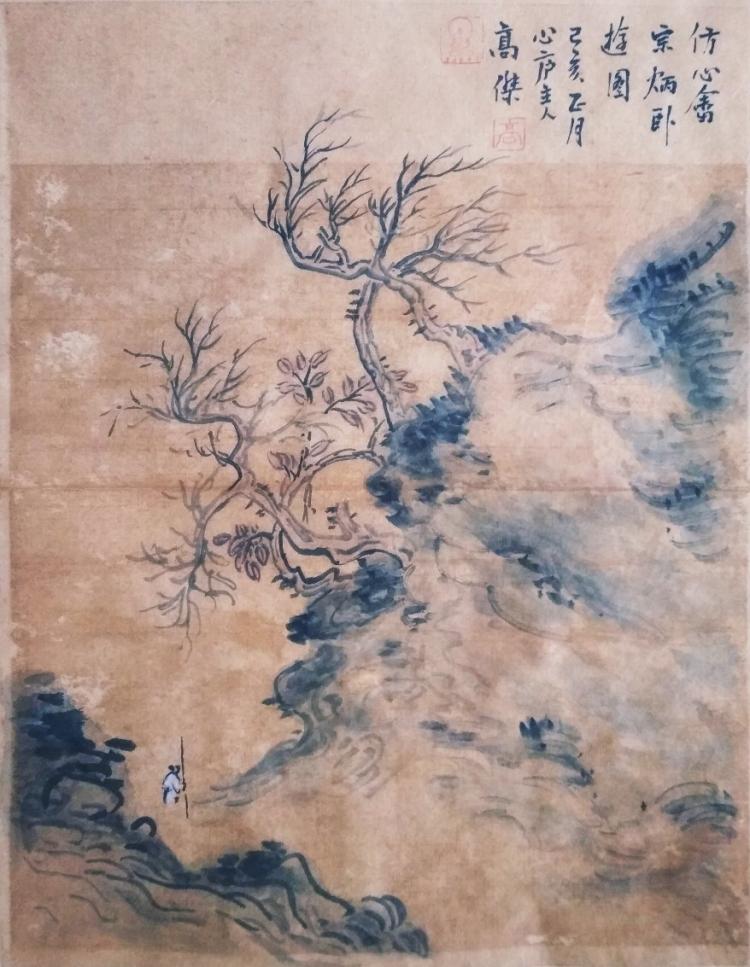 仿心畬
宗炳卧
游圖
己亥正月
心庐主人
高傑
高